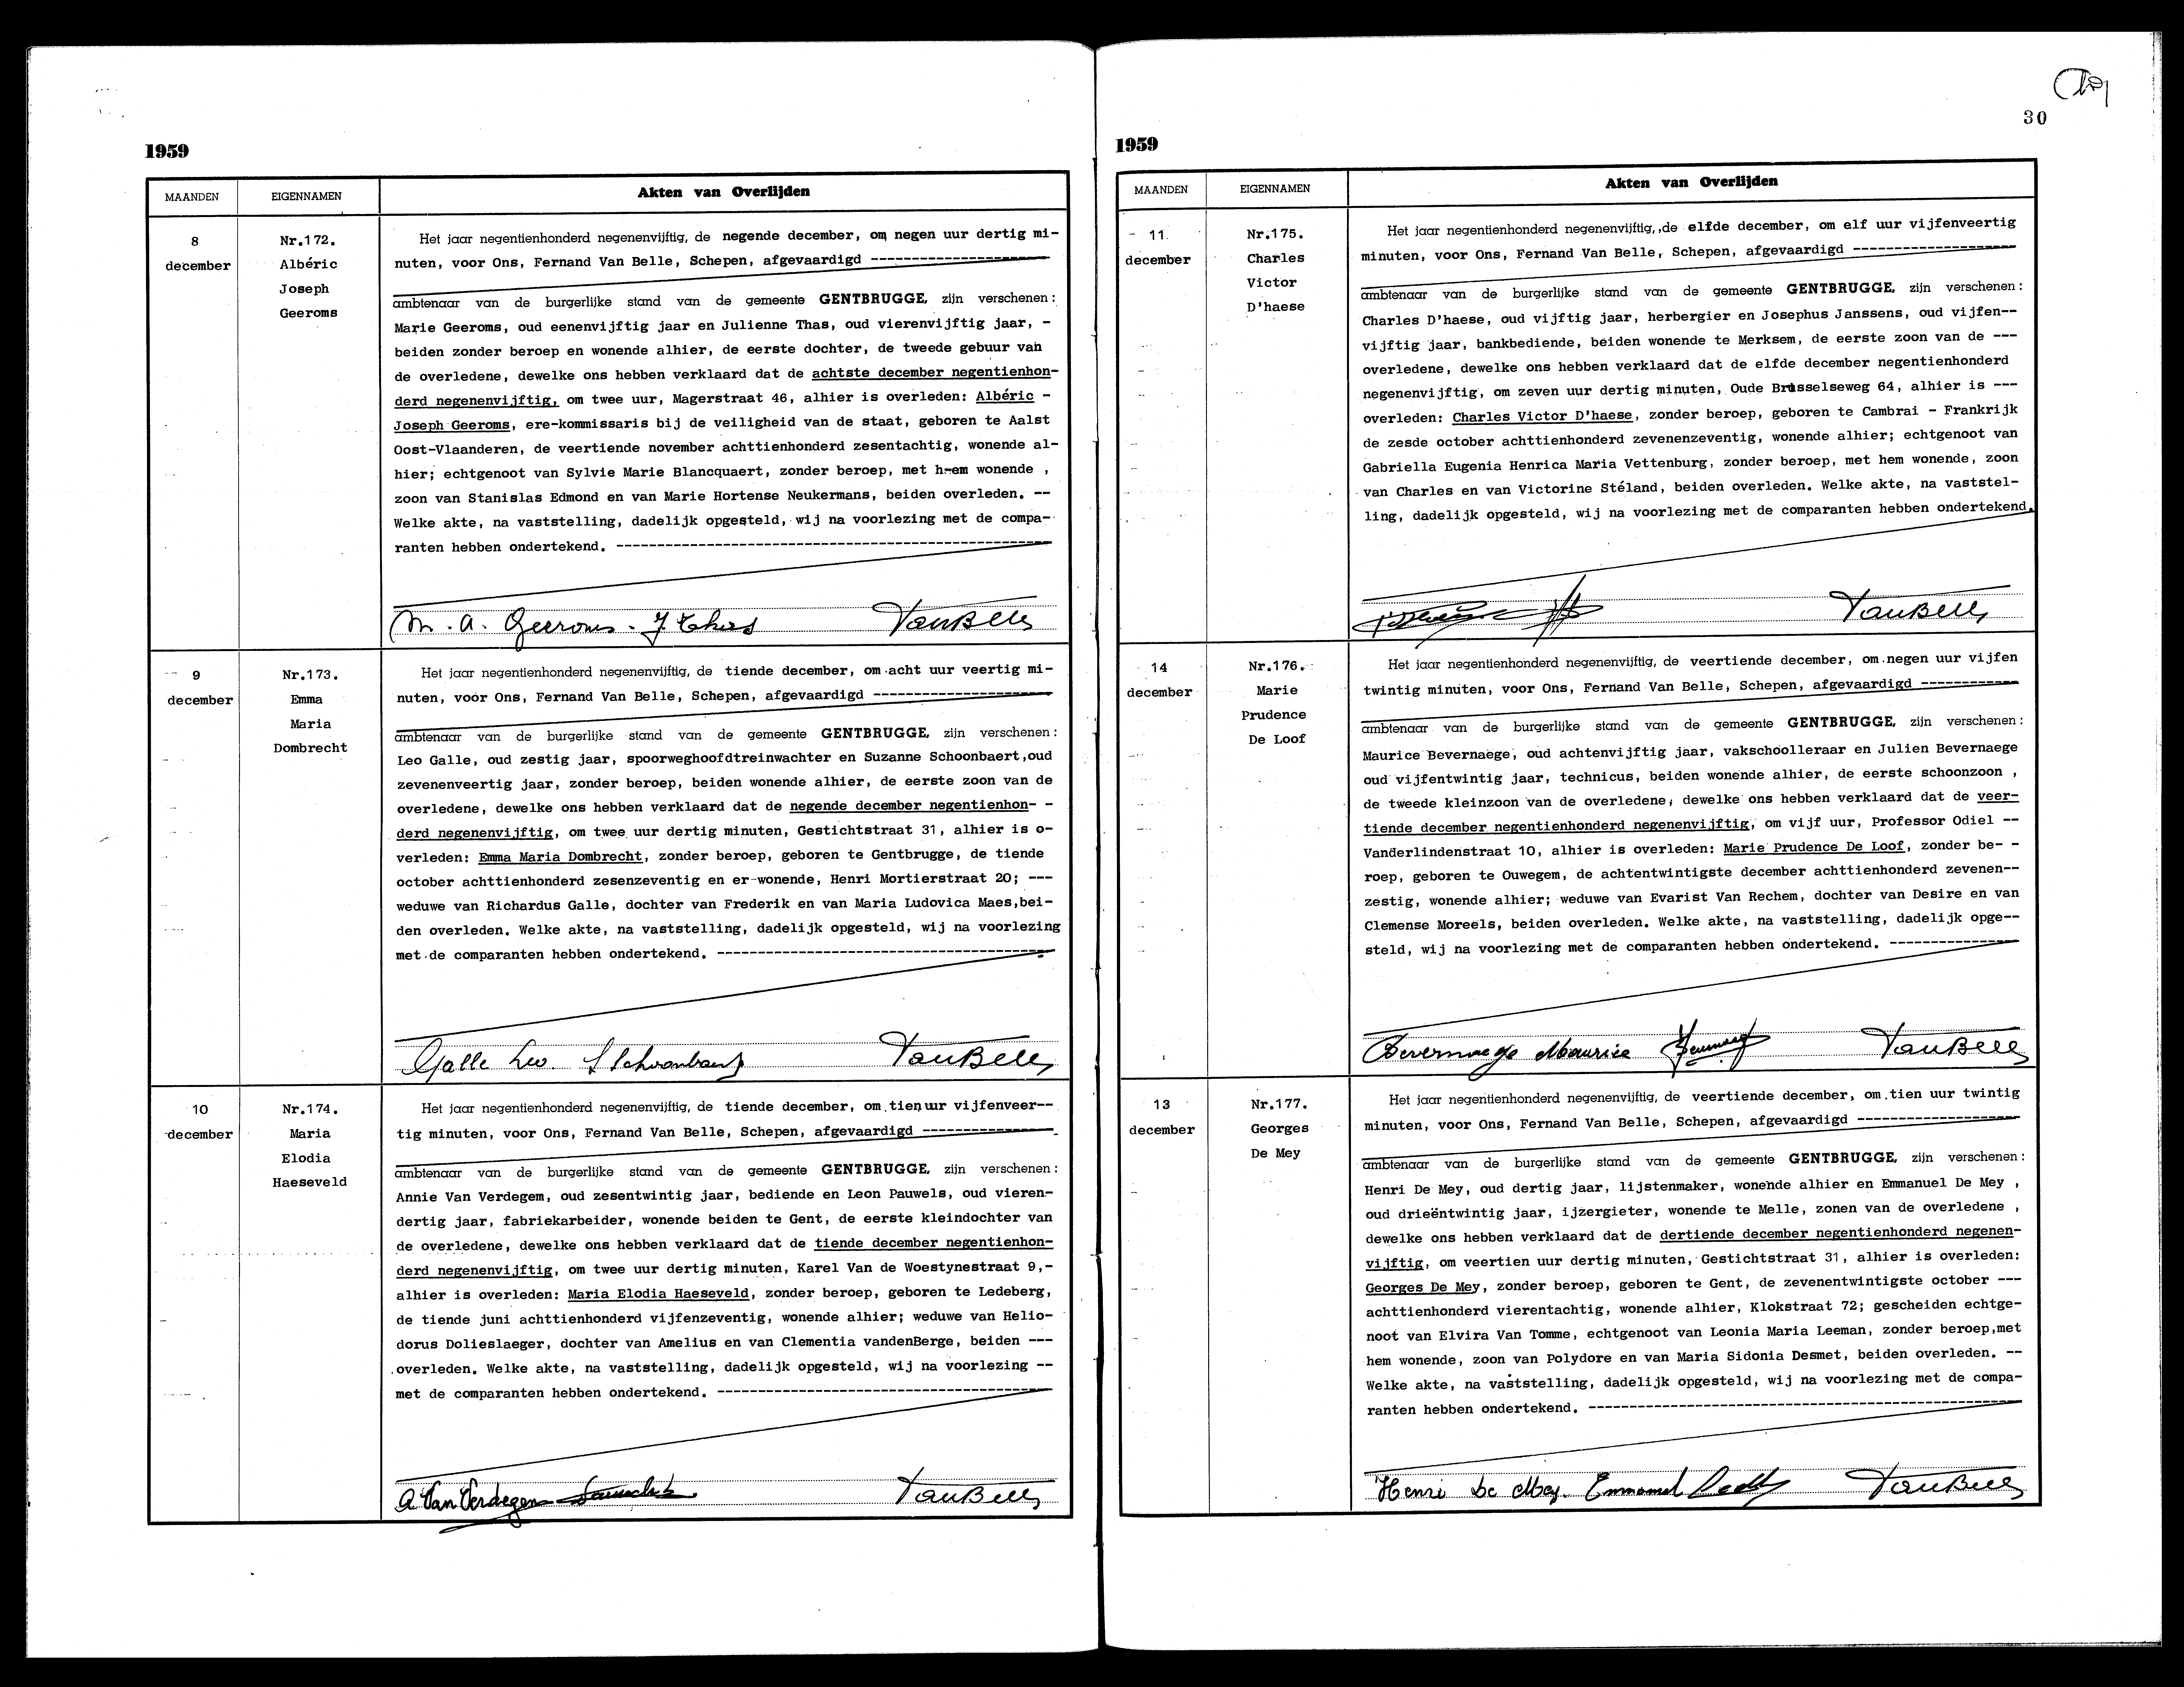 30
1959
MAANDEN
EIGENNAMEN
Akten van Overlijden
8
december
Nr.172.
Albéric
Joseph
Geeroms
Het jaar negentienhonderd negenenvijftig, de negende december, om negen uur dertig mi-
nuten, voor Ons, Fernand Van Belle, Schepen, afgevaardigd ----------------------
ambtenaar van de burgerlijke stand van de gemeente GENTBRUGGE, zijn verschenen:
Marie Geeroms, oud eenenvijftig jaar en Julienne Thas, oud vierenvijftig jaar, -
beiden zonder beroep en wonende alhier, de eerste dochter, de tweede gebuur van
de overledene, dewelke ons hebben verklaard dat de achtste december negentienhon-
derd negenenvijftig, om twee uur, Magerstraat 46, alhier is overleden: Albéric -
Joseph Geeroms, ere-kommissaris bij de veiligheid van de staat, geboren te Aalst
Oost-Vlaanderen, de veertiende november achttienhonderd zesentachtig, wonende al-
hier; echtgenoot van Sylvie Marie Blancquaert, zonder beroep, met hem wonende ,
zoon van Stanislas Edmond en van Marie Hortense Neukermans, beiden overleden. --
Welke akte, na vaststelling, dadelijk opgesteld, wij na voorlezing met de compa-
ranten hebben ondertekend. -----------------------------------------------------
M. A. Geeroms - J Thas VanBelle
9
december
Nr.173.
Emma
Maria
Dombrecht
Het jaar negentienhonderd negenenvijftig, de tiende december, om acht uur veertig mi-
nuten, voor Ons, Fernand Van Belle, Schepen, afgevaardigd ----------------------
ambtenaar van de burgerlijke stand van de gemeente GENTBRUGGE, zijn verschenen:
Leo Galle, oud zestig jaar, spoorweghoofdtreinwachter en Suzanne Schoonbaert,oud
zevenenveertig jaar, zonder beroep, beiden wonende alhier, de eerste zoon van de
overledene, dewelke ons hebben verklaard dat de negende december negentienhon- -
derd negenenvijftig, om twee uur dertig minuten, Gestichtstraat 31, alhier is o-
verleden: Emma Maria Dombrecht, zonder beroep, geboren te Gentbrugge, de tiende
october achttienhonderd zesenzeventig en er wonende, Henri Mortierstraat 20; ---
weduwe van Richardus Galle, dochter van Frederik en van Maria Ludovica Maes,bei-
den overleden. Welke akte, na vaststelling, dadelijk opgesteld, wij na voorlezing
met de comparanten hebben ondertekend. -----------------------------------------
Galle Leo. S Schoonbaert VanBelle
10
december
Nr.174.
Maria
Elodia
Haeseveld
Het jaar negentienhonderd negenenvijftig, de tiende december, om tien uur vijfenveer--
tig minuten, voor Ons, Fernand Van Belle, Schepen, afgevaardigd ----------------
ambtenaar van de burgerlijke stand van de gemeente GENTBRUGGE, zijn verschenen:
Annie Van Verdegem, oud zesentwintig jaar, bediende en Leon Pauwels, oud vieren-
dertig jaar, fabriekarbeider, wonende beiden te Gent, de eerste kleindochter van
de overledene, dewelke ons hebben verklaard dat de tiende december negentienhon-
derd negenenvijftig, om twee uur dertig minuten, Karel Van de Woestynestraat 9,-
alhier is overleden: Maria Elodia Haeseveld, zonder beroep, geboren te Ledeberg,
de tiende juni achttienhonderd vijfenzeventig, wonende alhier; weduwe van Helio-
dorus Dolieslaeger, dochter van Amelius en van Clementia vandenBerge, beiden ---
overleden. Welke akte, na vaststelling, dadelijk opgesteld, wij na voorlezing --
met de comparanten hebben ondertekend. -----------------------------------------
A Van Verdegem VanBelle
1959
MAANDEN
EIGENNAMEN
Akten van Overlijden
11
december
Nr.175.
Charles
Victor
D'haese
Het jaar negentienhonderd negenenvijftig, de elfde december, om elf uur vijfenveertig
minuten, voor Ons, Fernand Van Belle, Schepen, afgevaardigd --------------------
ambtenaar van de burgerlijke stand van de gemeente GENTBRUGGE, zijn verschenen:
Charles D'haese, oud vijftig jaar, herbergier en Josephus Janssens, oud vijfen--
vijftig jaar, bankbediende, beiden wonende te Merksem, de eerste zoon van de ---
overledene, dewelke ons hebben verklaard dat de elfde december negentienhonderd
negenenvijftig, om zeven uur dertig minuten, Oude Brusselseweg 64, alhier is ---
overleden: Charles Victor D'haese, zonder beroep, geboren te Cambrai - Frankrijk
de zesde october achttienhonderd zevenenzeventig, wonende alhier; echtgenoot van
Gabriella Eugenia Henrica Maria Vettenburg, zonder beroep, met hem wonende, zoon
van Charles en van Victorine Stéland, beiden overleden. Welke akte, na vaststel-
ling, dadelijk opgesteld, wij na voorlezing met de comparanten hebben ondertekend.
VanBelle
14
december
Nr.176.
Marie
Prudence
De Loof
Het jaar negentienhonderd negenenvijftig, de veertiende december, om negen uur vijfen
twintig minuten, voor Ons, Fernand Van Belle, Schepen, afgevaardigd ------------
ambtenaar van de burgerlijke stand van de gemeente GENTBRUGGE, zijn verschenen:
Maurice Bevernaege, oud achtenvijftig jaar, vakschoolleraar en Julien Bevernaege
oud vijfentwintig jaar, technicus, beiden wonende alhier, de eerste schoonzoon ,
de tweede kleinzoon van de overledene, dewelke ons hebben verklaard dat de veer-
tiende december negentienhonderd negenenvijftig, om vijf uur, Professor Odiel --
Vanderlindenstraat 10, alhier is overleden: Marie Prudence De Loof, zonder be- -
roep, geboren te Ouwegem, de achtentwintigste december achttienhonderd zevenen--
zestig, wonende alhier; weduwe van Evarist Van Rechem, dochter van Desire en van
Clemense Moreels, beiden overleden. Welke akte, na vaststelling, dadelijk opge--
steld, wij na voorlezing met de comparanten hebben ondertekend. ----------------
Bevernaege Maurice VanBelle
13
december
Nr.177.
Georges
De Mey
Het jaar negentienhonderd negenenvijftig, de veertiende december, om tien uur twintig
minuten, voor Ons, Fernand Van Belle, Schepen, afgevaardigd --------------------
ambtenaar van de burgerlijke stand van de gemeente GENTBRUGGE, zijn verschenen:
Henri De Mey, oud dertig jaar, lijstenmaker, wonende alhier en Emmanuel De Mey ,
oud drieëntwintig jaar, ijzergieter, wonende te Melle, zonen van de overledene ,
dewelke ons hebben verklaard dat de dertiende december negentienhonderd negenen-
vijftig, om veertien uur dertig minuten, Gestichtstraat 31, alhier is overleden:
Georges De Mey, zonder beroep, geboren te Gent, de zevenentwintigste october ---
achttienhonderd vierentachtig, wonende alhier, Klokstraat 72; gescheiden echtge-
noot van Elvira Van Tomme, echtgenoot van Leonia Maria Leeman, zonder beroep,met
hem wonende, zoon van Polydore en van Maria Sidonia Desmet, beiden overleden. --
Welke akte, na vaststelling, dadelijk opgesteld, wij na voorlezing met de compa-
ranten hebben ondertekend. -----------------------------------------------------
Henri De Mey. Emmanuel VanBelle